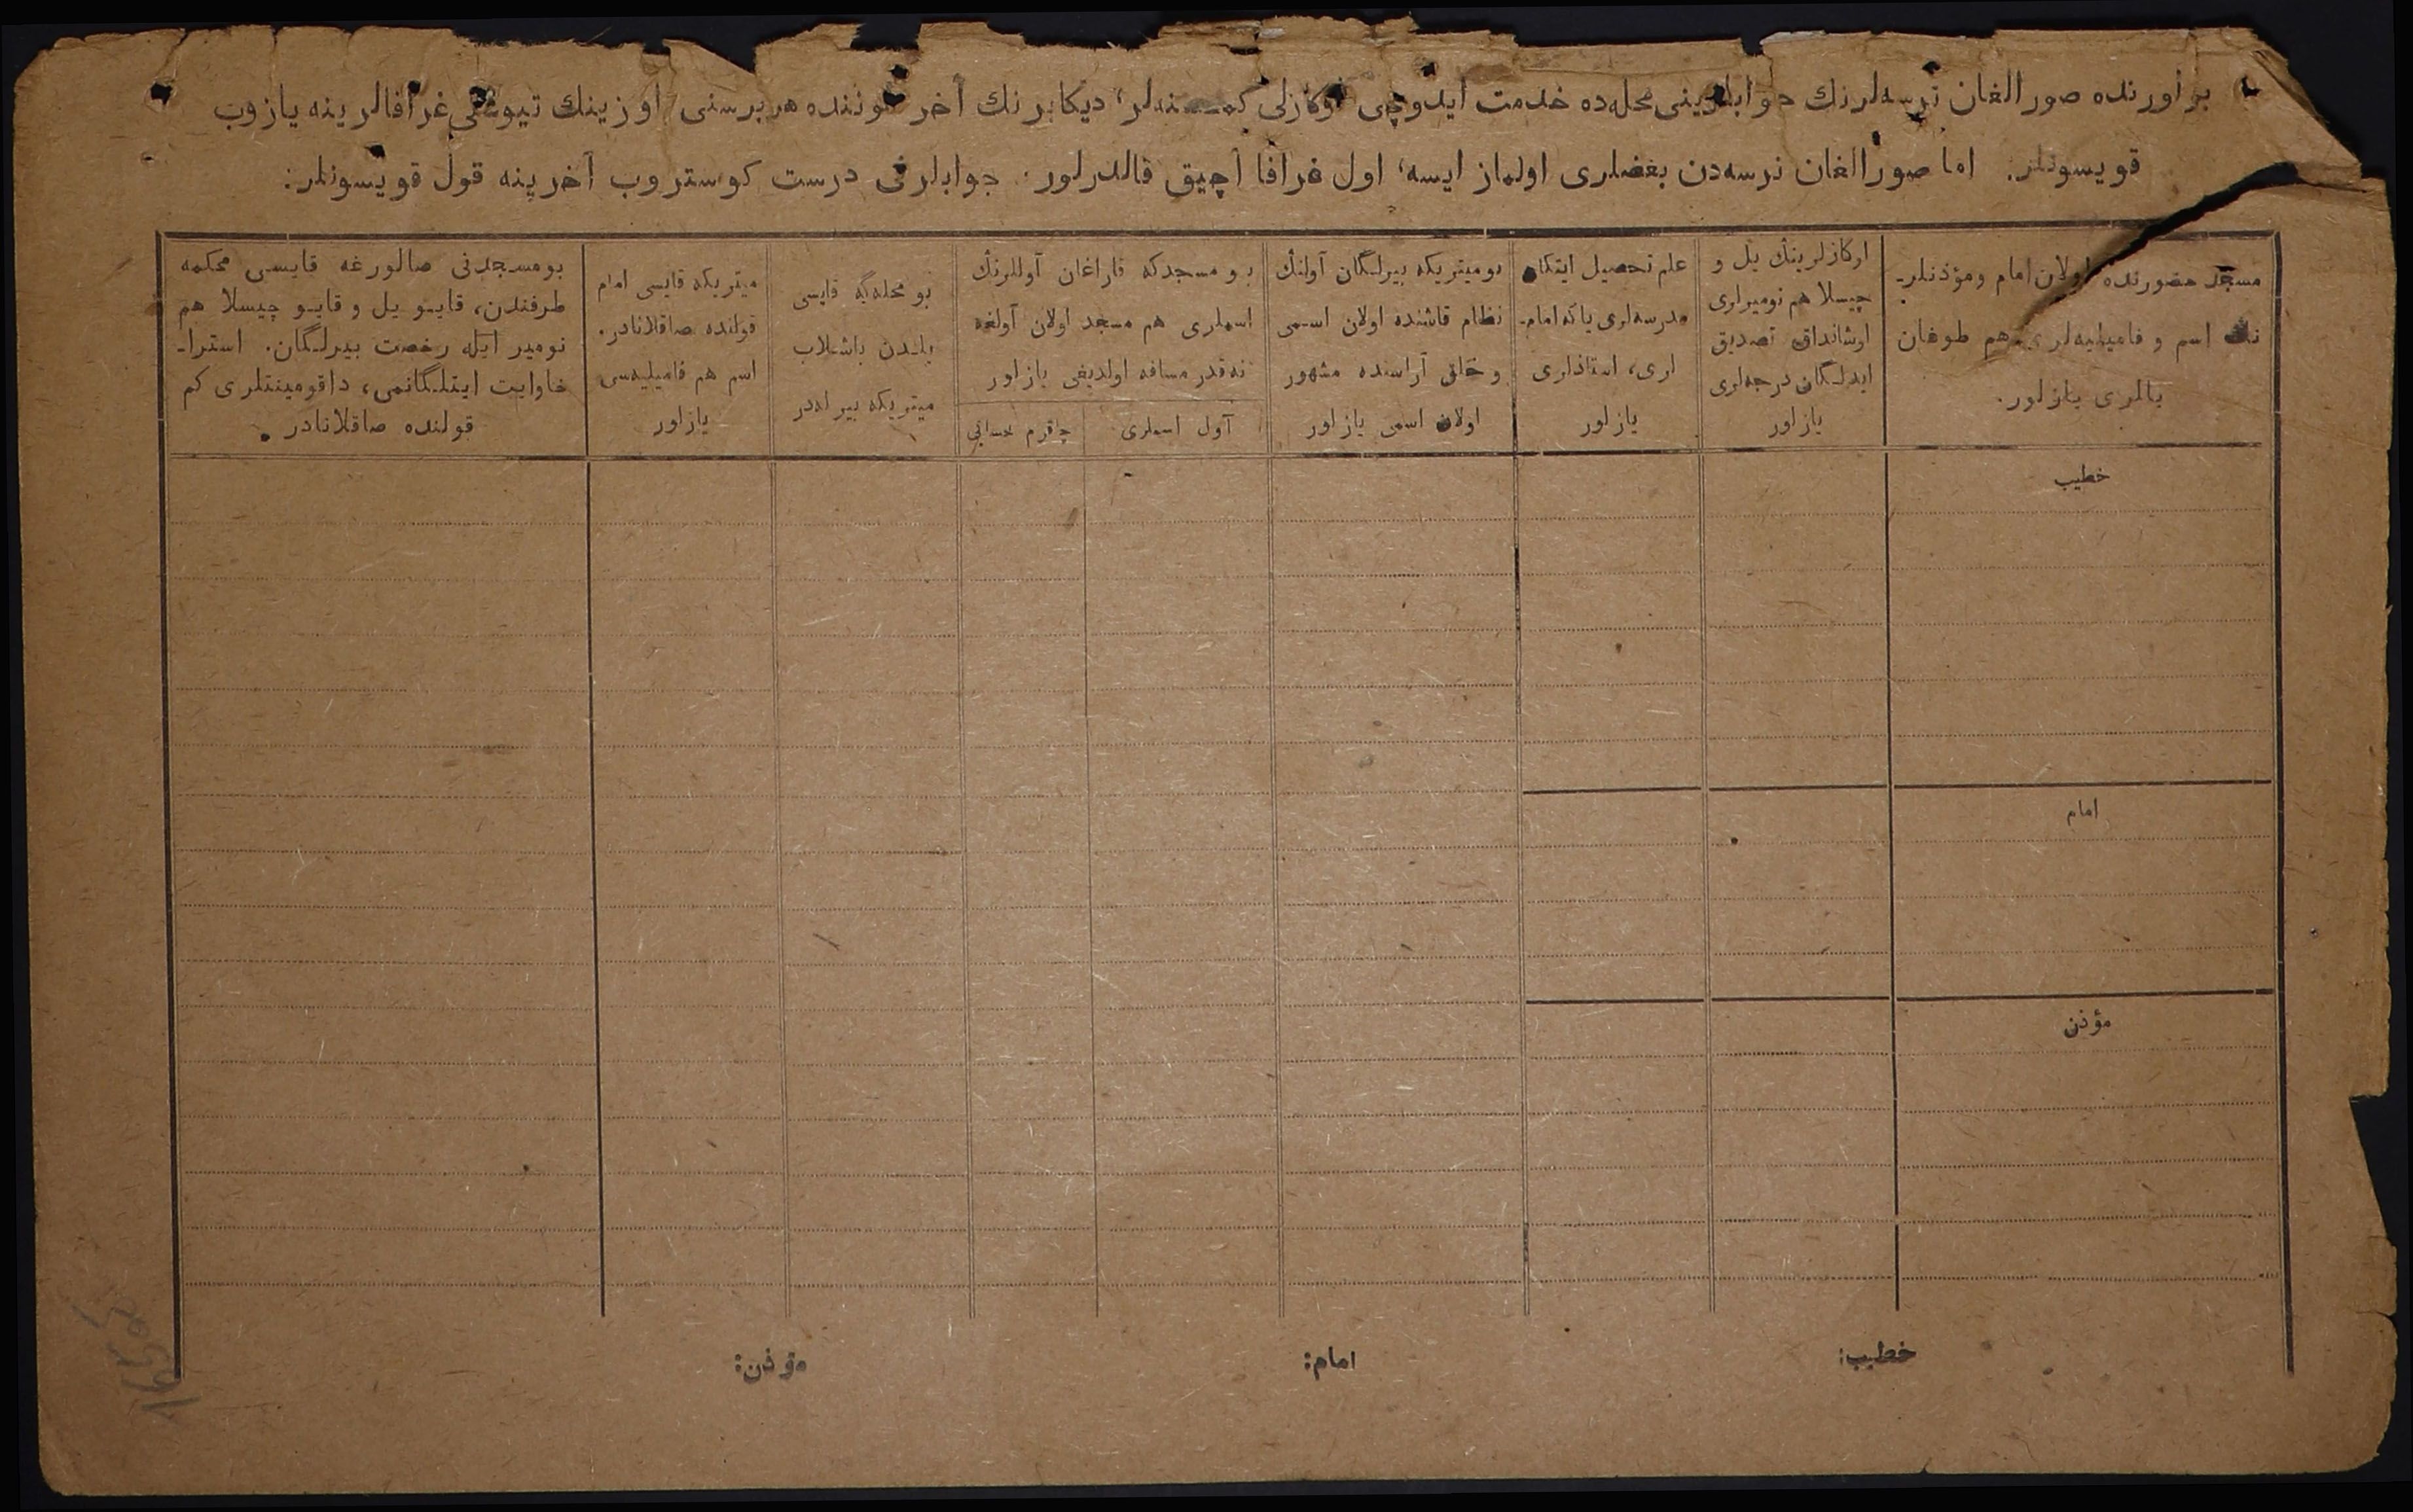 بر اورنده صورالغان نرسه‌لرنك جوابلارینی محله‌ده خدمت ایدوچی اوكازلی كمسنه‌لر، دیكابرنك آخر كوننده هر برسنی اوزینك تیوشلی غرافالرینه یازوب
قویسونلر. اما صورالغان نرسه‌دن بغضلری اولماز ایسه، اول غرافا آچیق قالدرلور. جوابلرنی درست كوستروب آخرینه قول قویسونلر:
مسجد حضورنده اولان امام ومؤذنلر-
نڭ اسم و فامیلیه‌لری هم طوغان
یاللری یازلور.
اوكازلرینڭ یل و
چیسلا هم نومیرلری
اوشانداق تصدیق
ایدلـگان درجه‌لری
یازلور
علم تحصیل ایتكان
مدرسه‌لری یاكه امام-
لری، استاذلری
یازلور
بومیتریكه بیرلـگان آولنڭ
نظام قاشنده اولان اسمی
و خلق آراسنده مشهور
اولان اسمی یازلور
بو مسجدكه قاراغان آوللرنڭ
اسملری هم مسجد اولان آولغه
نه‌قدر مسافه اولدیغی یازلور
آول اسملری
چاقرم حسابی
بو محله‌گه قایسی
یلـدن باشلاب
میتریكه بیرله‌در
میتریكه قایسی امام
قولنده صاقلانادر.
اسم هم فامیلیه‌سی
یازلور
بومسجدنی صالورغه قایسی محكمه
طرفندن، قایـو یل و قایـو چیسلا هم
نومیر ایله رخصت بیرلـگان. استرا-
خاوایت ایتلـگانمی، داقومینتلری كم
قولنده صاقلانادر.
خطیب
امام
مؤذن
خطیب:
امام:
مؤذن: